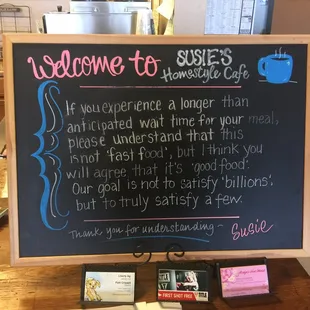 Welcome to SUSIE'S
Homestyle Cafe
If you experience a longer than
anticipated wait time for your meal,
please understand that this
is not 'fast food', but I think you
will agree that it's 'good food'.
Our goal is not to satisfy 'billions',
but to truly satisfy a few.
Thank you for understanding ~ Susie
FIRST SHOT FREE